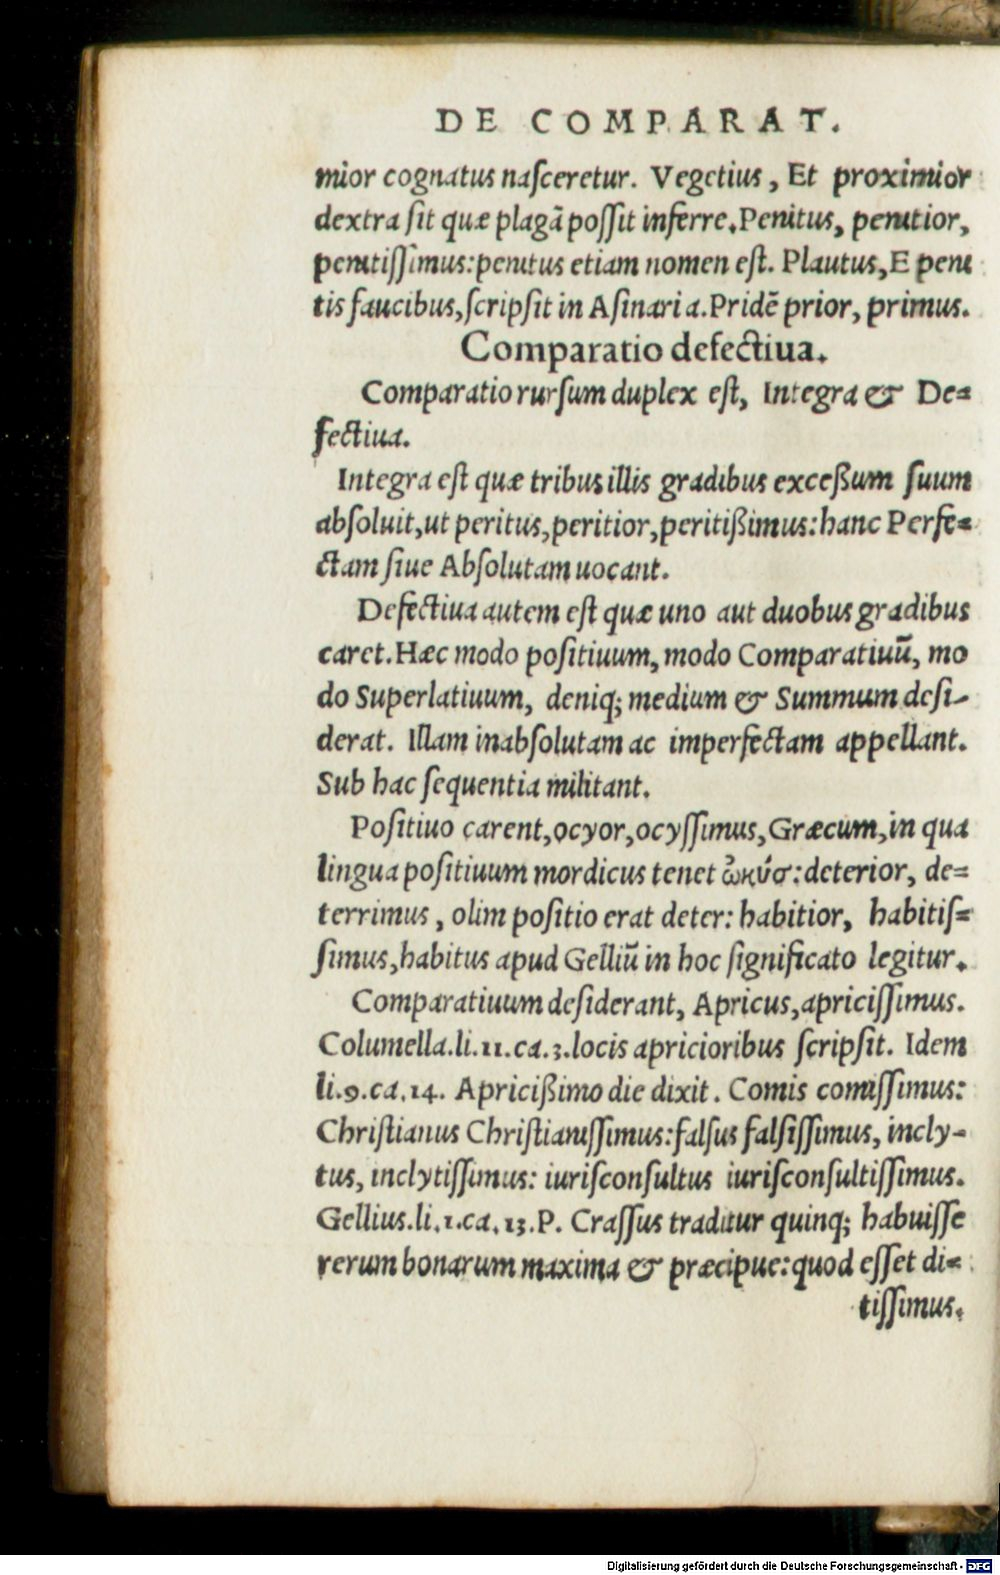 DE COMPARAT.
mior cognatus naſceretur. Vegetius, Et proximior
dextra ſit quæ plagā poſſit inferre. Penitus, penitior,
penitiſſimus: penitus etiam nomen eſt. Plautus, E peni
tis faucibus, ſcripſit in Aſinaria. Pridē prior, primus.
Comparatio defectiua.
Comparatio rurſum duplex eſt, Integra & De=
fectiua.
Integra eſt quæ tribus illis gradibus exceßum ſuum
abſoluit, ut peritus, peritior, peritißimus: hanc Perfe=
ctam ſiue Abſolutam uocant.
Defectiua autem eſt quæ uno aut duobus gradibus
caret. Hæc modo poſitiuum, modo Comparatiuū, mo
do Superlatiuum, deniq; medium & Summum deſi-
derat. Illam inabſolutam ac imperfectam appellant.
Sub hac ſequentia militant.
Poſitiuo carent, ocyor, ocyſſimus, Græcum, in qua
lingua poſitiuum mordicus tenet ὠκύσ: deterior, de=
terrimus, olim poſitio erat deter: habitior, habitiſ=
ſimus, habitus apud Gelliū in hoc ſignificato legitur.
Comparatiuum deſiderant, Apricus, apriciſſimus.
Columella. li. 11. ca. 3. locis apricioribus ſcripſit. Idem
li. 9. ca. 14. Apricißimo die dixit. Comis comiſſimus:
Chriſtianus Chriſtianiſſimus: falſus falſiſſimus, incly-
tus, inclytiſſimus: iuriſconſultus iuriſconſultiſſimus.
Gellius. li. 1. ca. 13. P. Craſſus traditur quinq; habuiſſe
rerum bonarum maxima & præcipue: quod eſſet di=
tiſſimus.
Digitalisierung gefördert durch die Deutsche Forschungsgemeinschaft - DFG